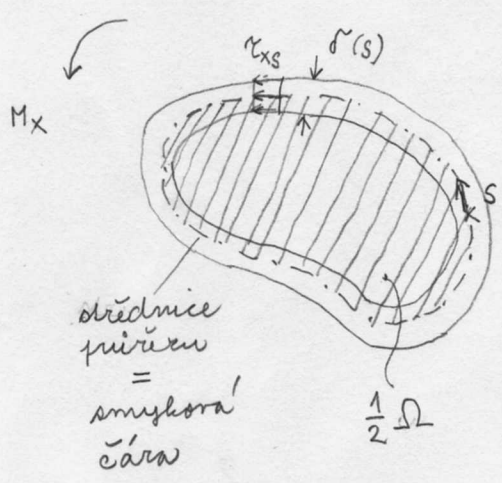 τxs
δ(s)
Mx
s
střědnice
průřezu
=
smyková
čára
1/2 Ω